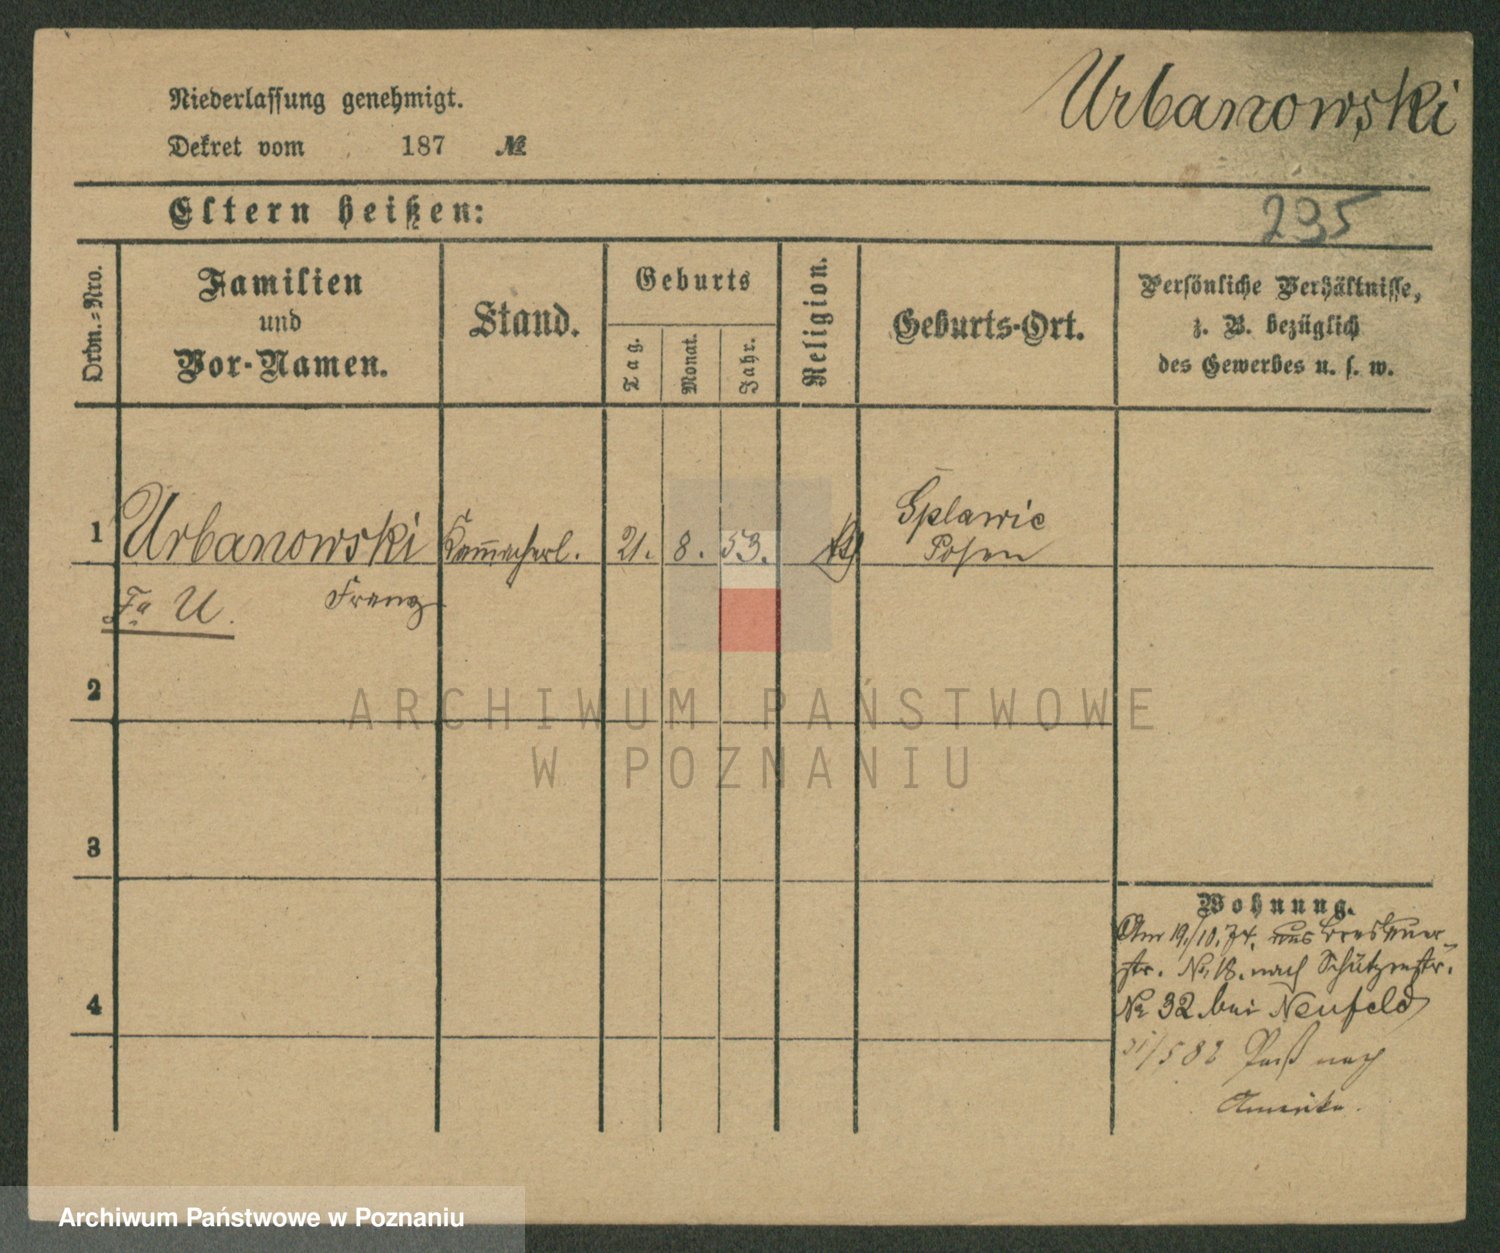 Urbanowski
Niederlassung genehmigt.
Dekret vom 187 №
Eltern heißen:
295
Ordn.-Nro.
Familien
und
Vor-Namen.
Stand.
Geburts
Tag.
Monat.
Jahr.
Religion.
Geburts-Ort.
Persönliche Verhältnisse,
z. B. bezüglich
des Gewerbes u. s. w.
1 Urbanowski 21. 8. 53. Splawie
Posen
Fa U. Franz
2
ARCHIWUM PAŃSTWOWE
W POZNANIU
3
Wohnung.
Am 19./10.74. aus Breslauer-
str. No 18. nach Schützenstr.
4
No 32 bei Neufeld
Paß nach
Amerika.
Archiwum Państwowe w Poznaniu